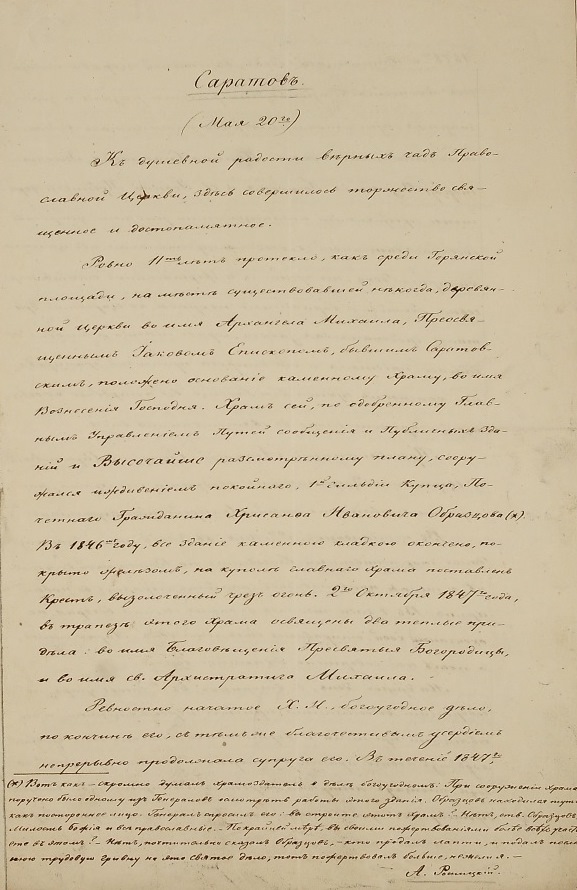 Саратовъ.
(Мая 20го)
Къ душевной радости вѣрныхъ чадъ Право-
славной Церкви, здѣсь совершилось торжество свя-
щенное и достопамятное.
Ровно 11ть лѣтъ протекло, какъ среди Горянской
площади, на мѣстѣ существовавшей нѣкогда, деревян-
ной церкви во имя Архангела Михаила, Преосвя-
щеннымъ Іаковомъ Епископомъ, бывшимъ Саратов-
скимъ, положено основаніе каменному Храму, во имя
Вознесенія Господня. Храмъ сей, по одобренному Глав-
нымъ Управленіемъ Путей сообщенія и Публичныхъ зда-
ній и Высочайше разсмотрѣнному плану, соору-
жался иждивеніемъ покойнаго, 1й гильдіи Купца, По-
четнаго Гражданина Хрисанѳа Ивановича Образцова (х).
Въ 1846мъ году, все зданіе каменною кладкою окончено, по-
крыто желѣзомъ, на куполѣ главнаго храма поставленъ
Крестъ, вызолоченный чрезъ огонь. 2го Октября 1847го года,
въ трапезѣ этого Храма освящены два теплые при-
дѣла: во имя Благовѣщенія Пресвятыя Богородицы,
и во имя св. Архистратига Михаила.
Ревностно начатое Х. И., богоугодное дѣло,
по кончинѣ его, съ тѣмъ же благочестивымъ усердіемъ
непрерывно продолжала супруга его. Въ теченіе 1847го
(х) Вотъ какъ скромно думалъ храмоздатель о дѣлѣ богоугодномъ: При сооруженіи Храма
поручено было одному изъ Генераловъ осмотрѣть работы этого зданія. Образцовъ находился тутъ
какъ постороннее лицо. Генералъ спросилъ его: вы строите этотъ Храмъ? Нѣтъ, отв. Образцовъ,
Милость Божія и все православные. — По крайней мѣрѣ, вы своими пожертвованіями болѣе всѣхъ
ете въ этомъ? — Нѣтъ, почтительно сказалъ Образцовъ, — кто продалъ лапти, и подалъ
нюю трудовую гривну на это святое дѣло, тотъ пожертвовалъ больше, нежели я. —
А.